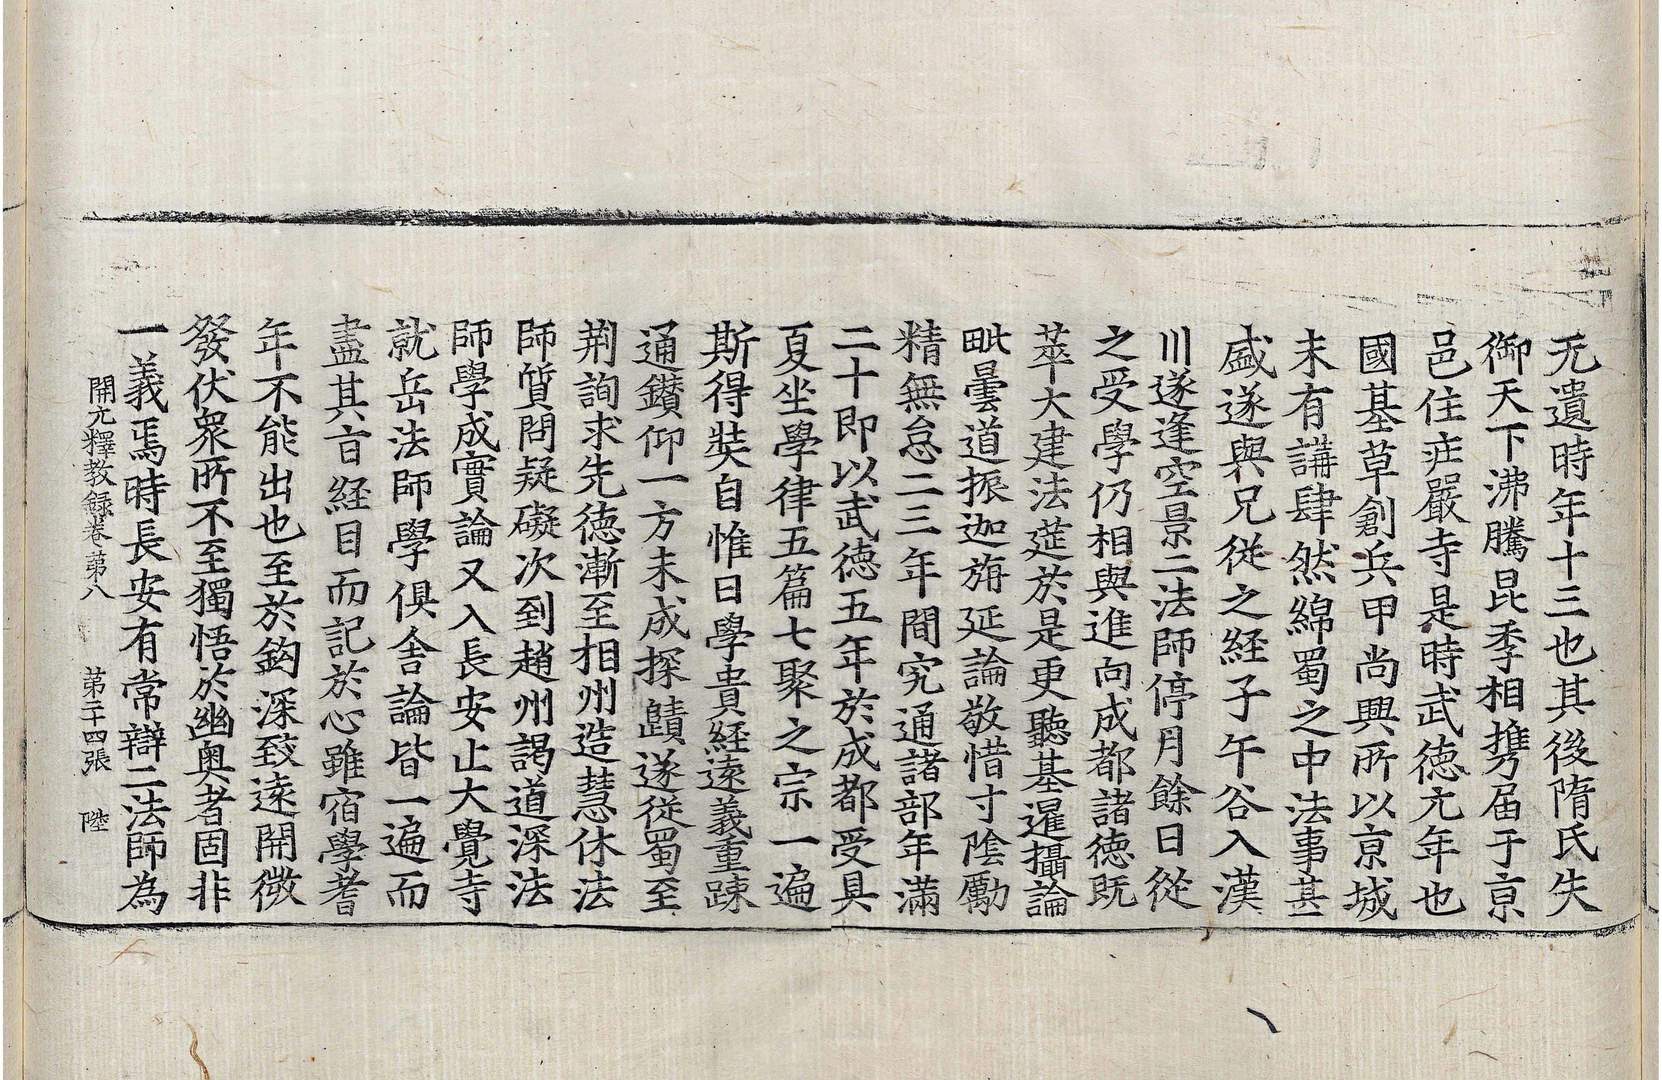 无遺時年十三也其後隋氏失
御天下沸騰昆季相携届于京
邑住庄嚴寺是時武德元年也
國基草創兵甲尚興所以京城
未有講肆然綿蜀之中法事甚
盛遂與兄從之経子午谷入漢
川遂逢空景二法師停月餘日從
之受學仍相與進向成都諸德既
萃大建法莚於是更聽基暹攝論
毗曇道振迦旃延論敬惜寸陰勵
精無怠二三年間究通諸部年滿
二十即以武德五年於成都受具
夏坐學律五篇七聚之宗一遍
斯得奘自惟曰學貴経遠義重疎
通鑚仰一方未成探賾遂從蜀至
荆詢求先德漸至相州造慧休法
師質問疑礙次到趙州謁道深法
師學成實論又入長安止大覺寺
就岳法師學俱舍論皆一遍而
盡其旨経目而記於心雖宿學耆
年不能出也至於鈎深致遠開微
發伏衆所不至獨悟於幽奥者固非
一義焉時長安有常辯二法師為
開元釋教録卷第八 第二十四張 陞